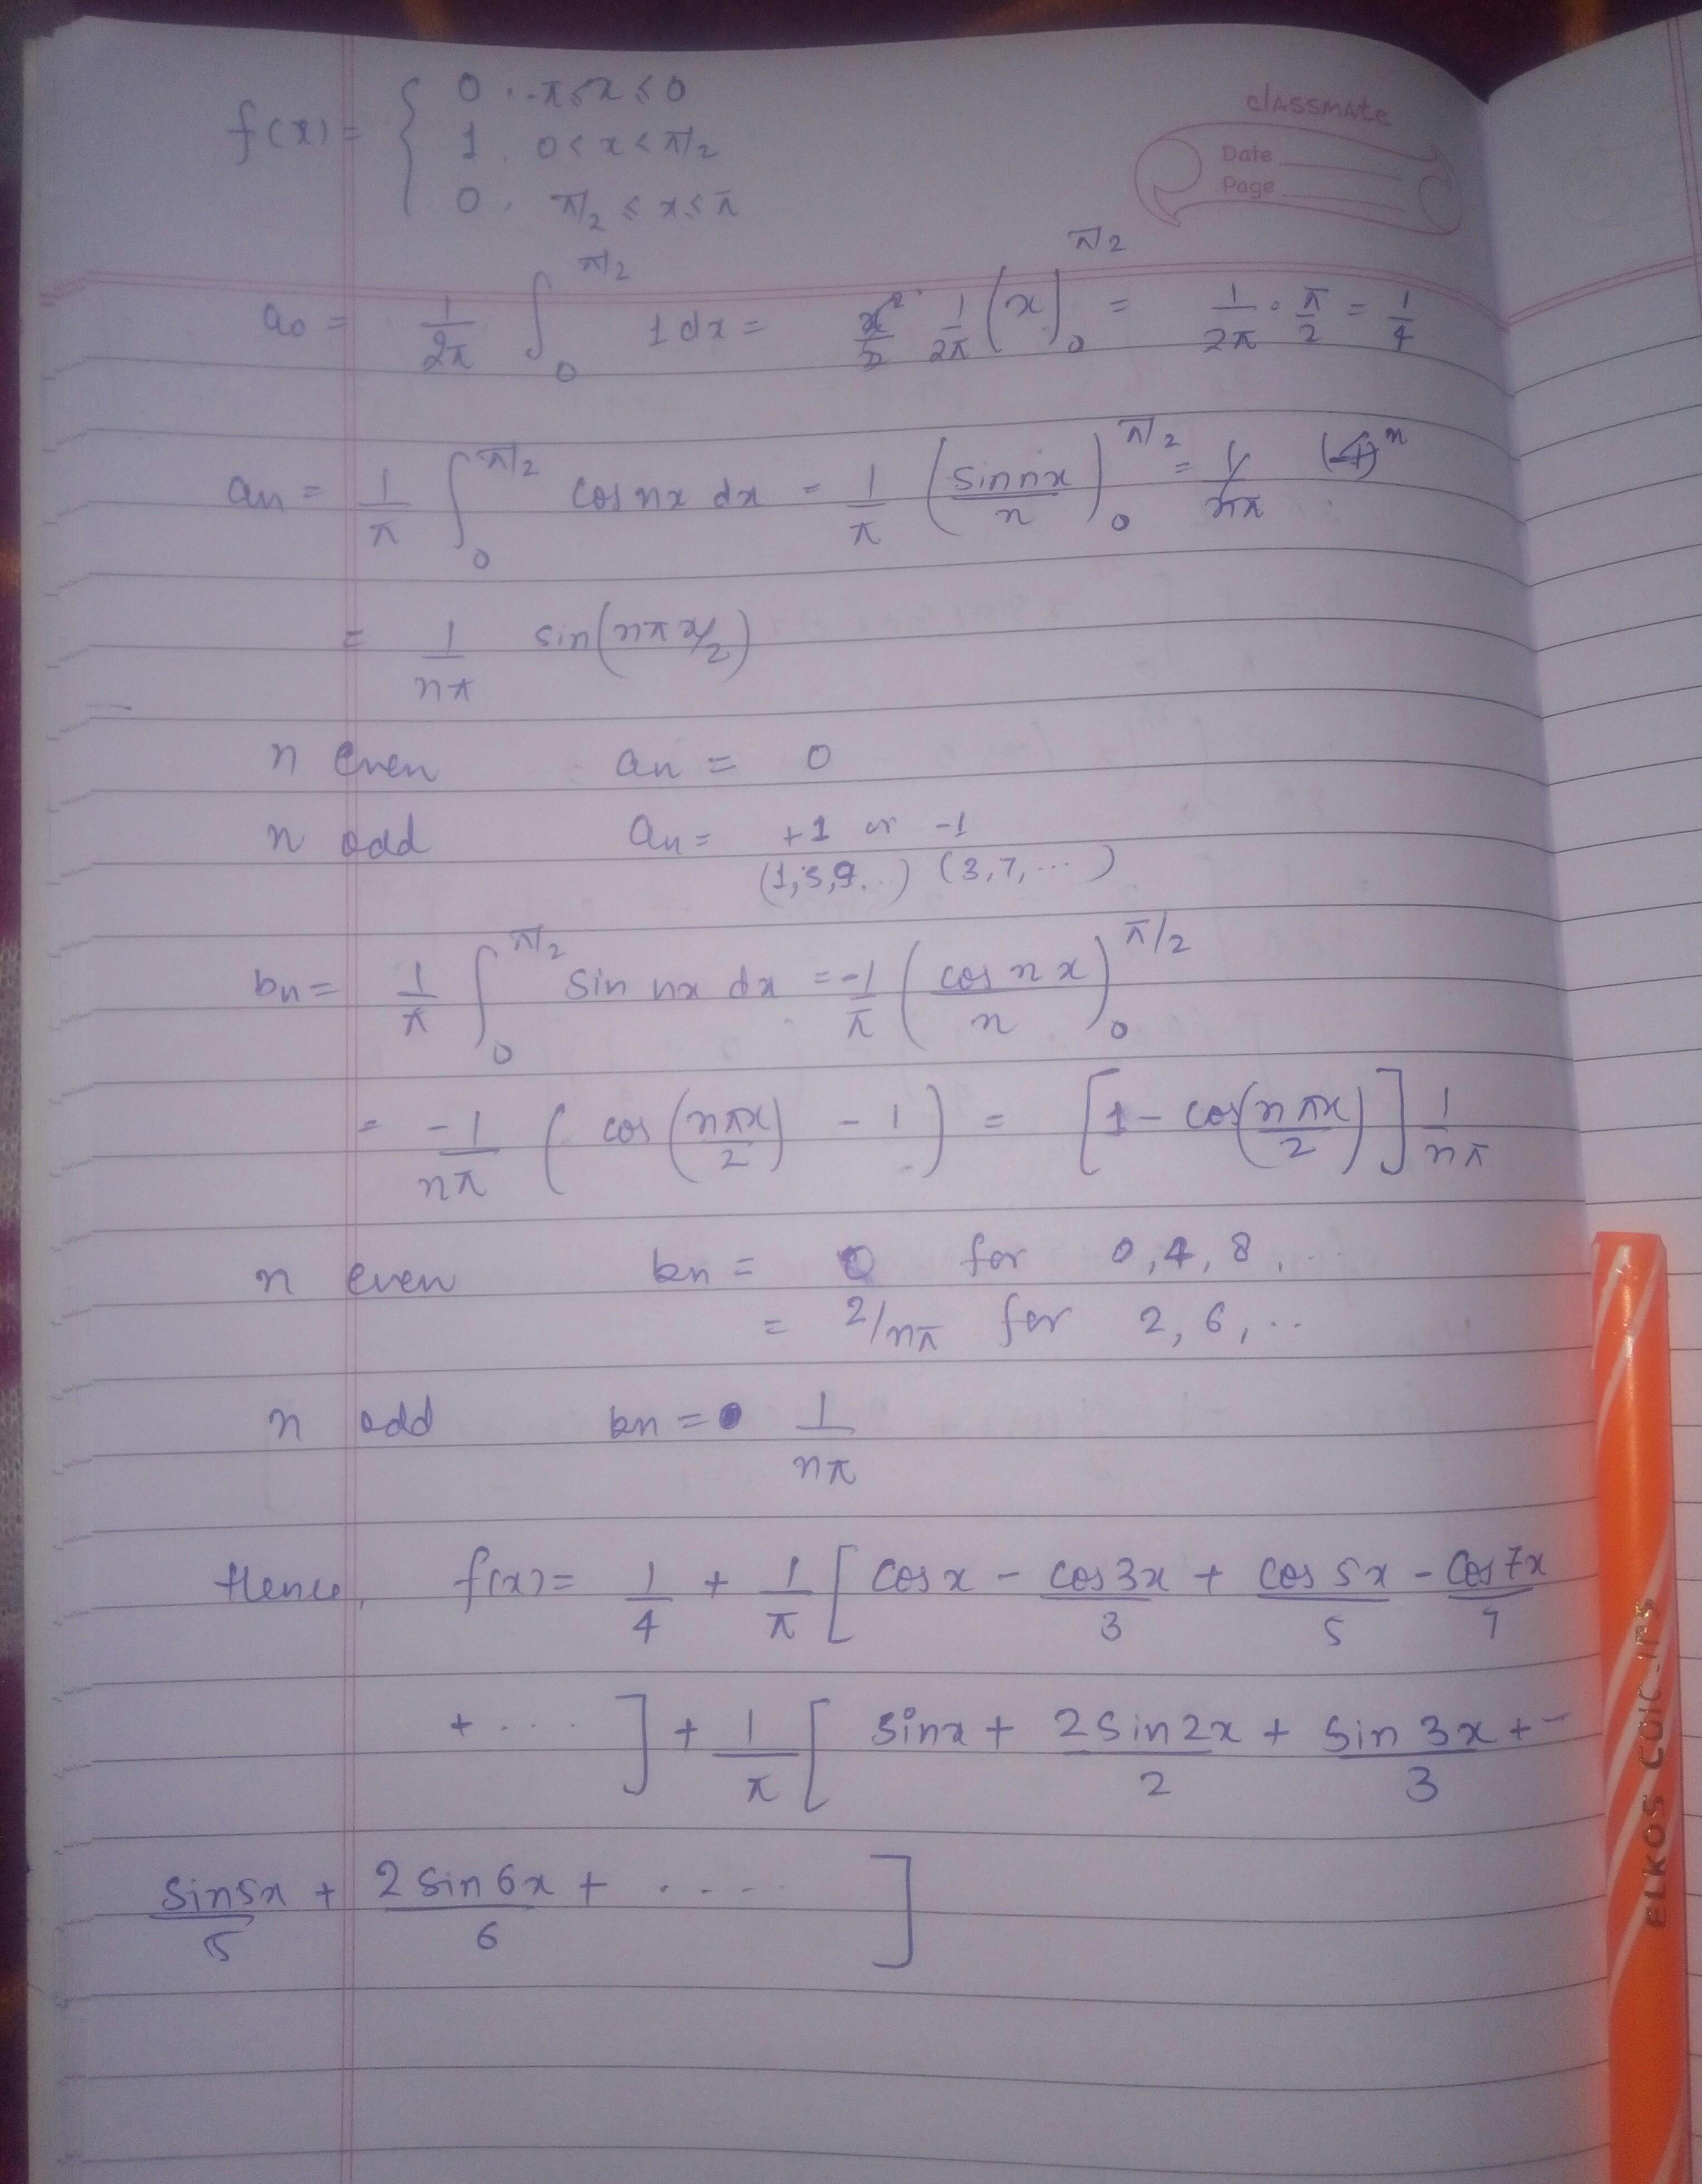 classmate
Date
Page
f(x) = { 0 . -π ≤ x ≤ 0
1 . 0 < x < π/2
0 . π/2 ≤ x ≤ π
a0 = 1/2π ∫_0^{π/2} 1 dx = 1/2π (x)_0^{π/2} = 1/2π . π/2 = 1/4
an = 1/π ∫_0^{π/2} cos nx dx = 1/π (sin nx / n)_0^{π/2} = 1/nπ
= 1/nπ sin(nπx/2)
n even an = 0
n odd an = +1 or -1
(1,5,9..) (3,7,...)
bn = 1/π ∫_0^{π/2} sin nx dx = -1/π (cos nx / n)_0^{π/2}
= -1/nπ ( cos (nπx/2) - 1 ) = [1 - cos(nπx/2)] 1/nπ
n even bn = 0 for 0,4,8,..
= 2/nπ for 2,6,..
n odd bn = 1/nπ
Hence, f(x) = 1/4 + 1/π [ cos x - cos 3x/3 + cos 5x/5 - cos 7x/7
+ .... ] + 1/π [ sin x + 2 sin 2x/2 + sin 3x/3 + -
sin 5x/5 + 2 sin 6x/6 + .... ]
ELKOS